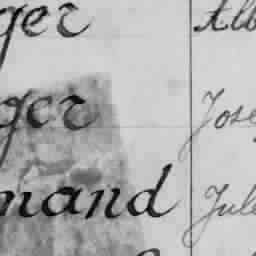 ger Alb
ger Jose
mand Jule